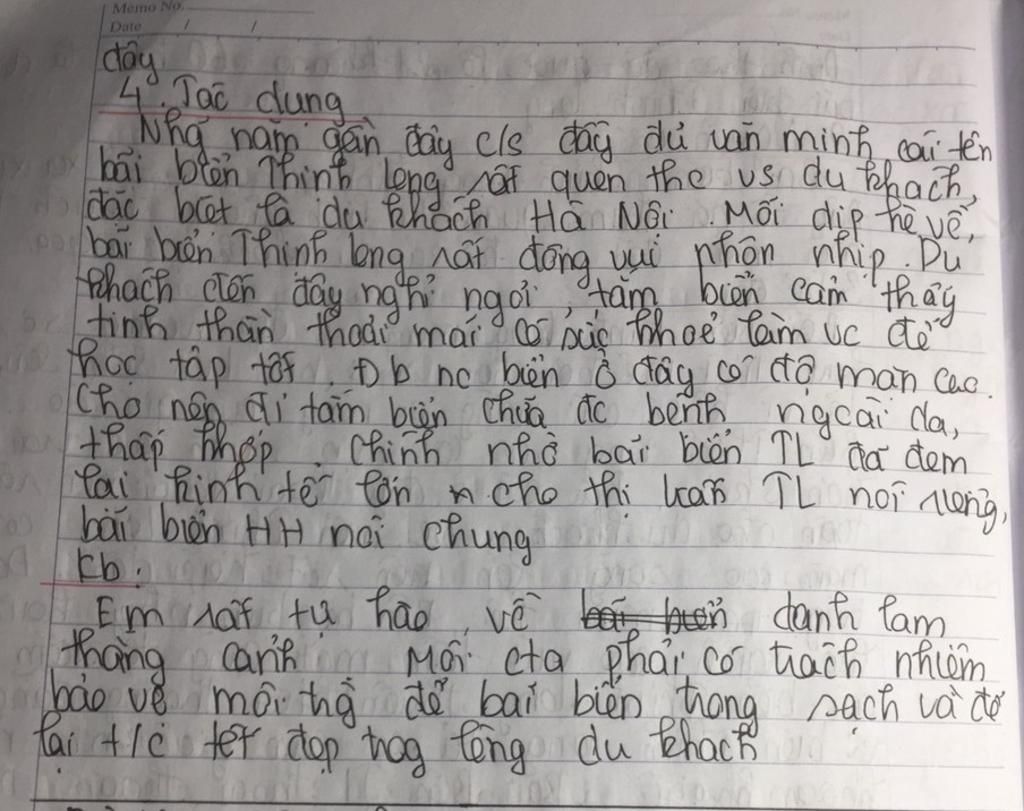 Memo No.
Date / /
đây
4. Tác dung
Nhg năm gần đây c/s đầy đủ văn minh cái tên
bãi biển Thinh long rất quen thc vs du khach,
đặc biêt là du khách Hà Nôi. Mỗi dip hè về,
bãi biển Thinh long rất đông vui nhôn nhip. Du
khach đến đây nghỉ ngơi, tăm biển cảm thấy
tinh thần thoải mái có sức khoẻ làm vc để
học tâp tốt. Đb nc biển ở đây có đô măn cao.
Cho nên đi tắm biển chữa đc bênh ngcài da,
thấp khớp. Chinh nhờ bãi biển TL đã đem
lai kinh tế lớn cho thi trấn TL nói riêng,
bãi biển HH nói chung
Kb:
Em rất tự hào về bãi biển danh lam
thắng canh Mỗi cta phải có trach nhiêm
bảo vê môi tg để bai biển trong sạch và để
lại t/c tốt đẹp trog lòng du khach